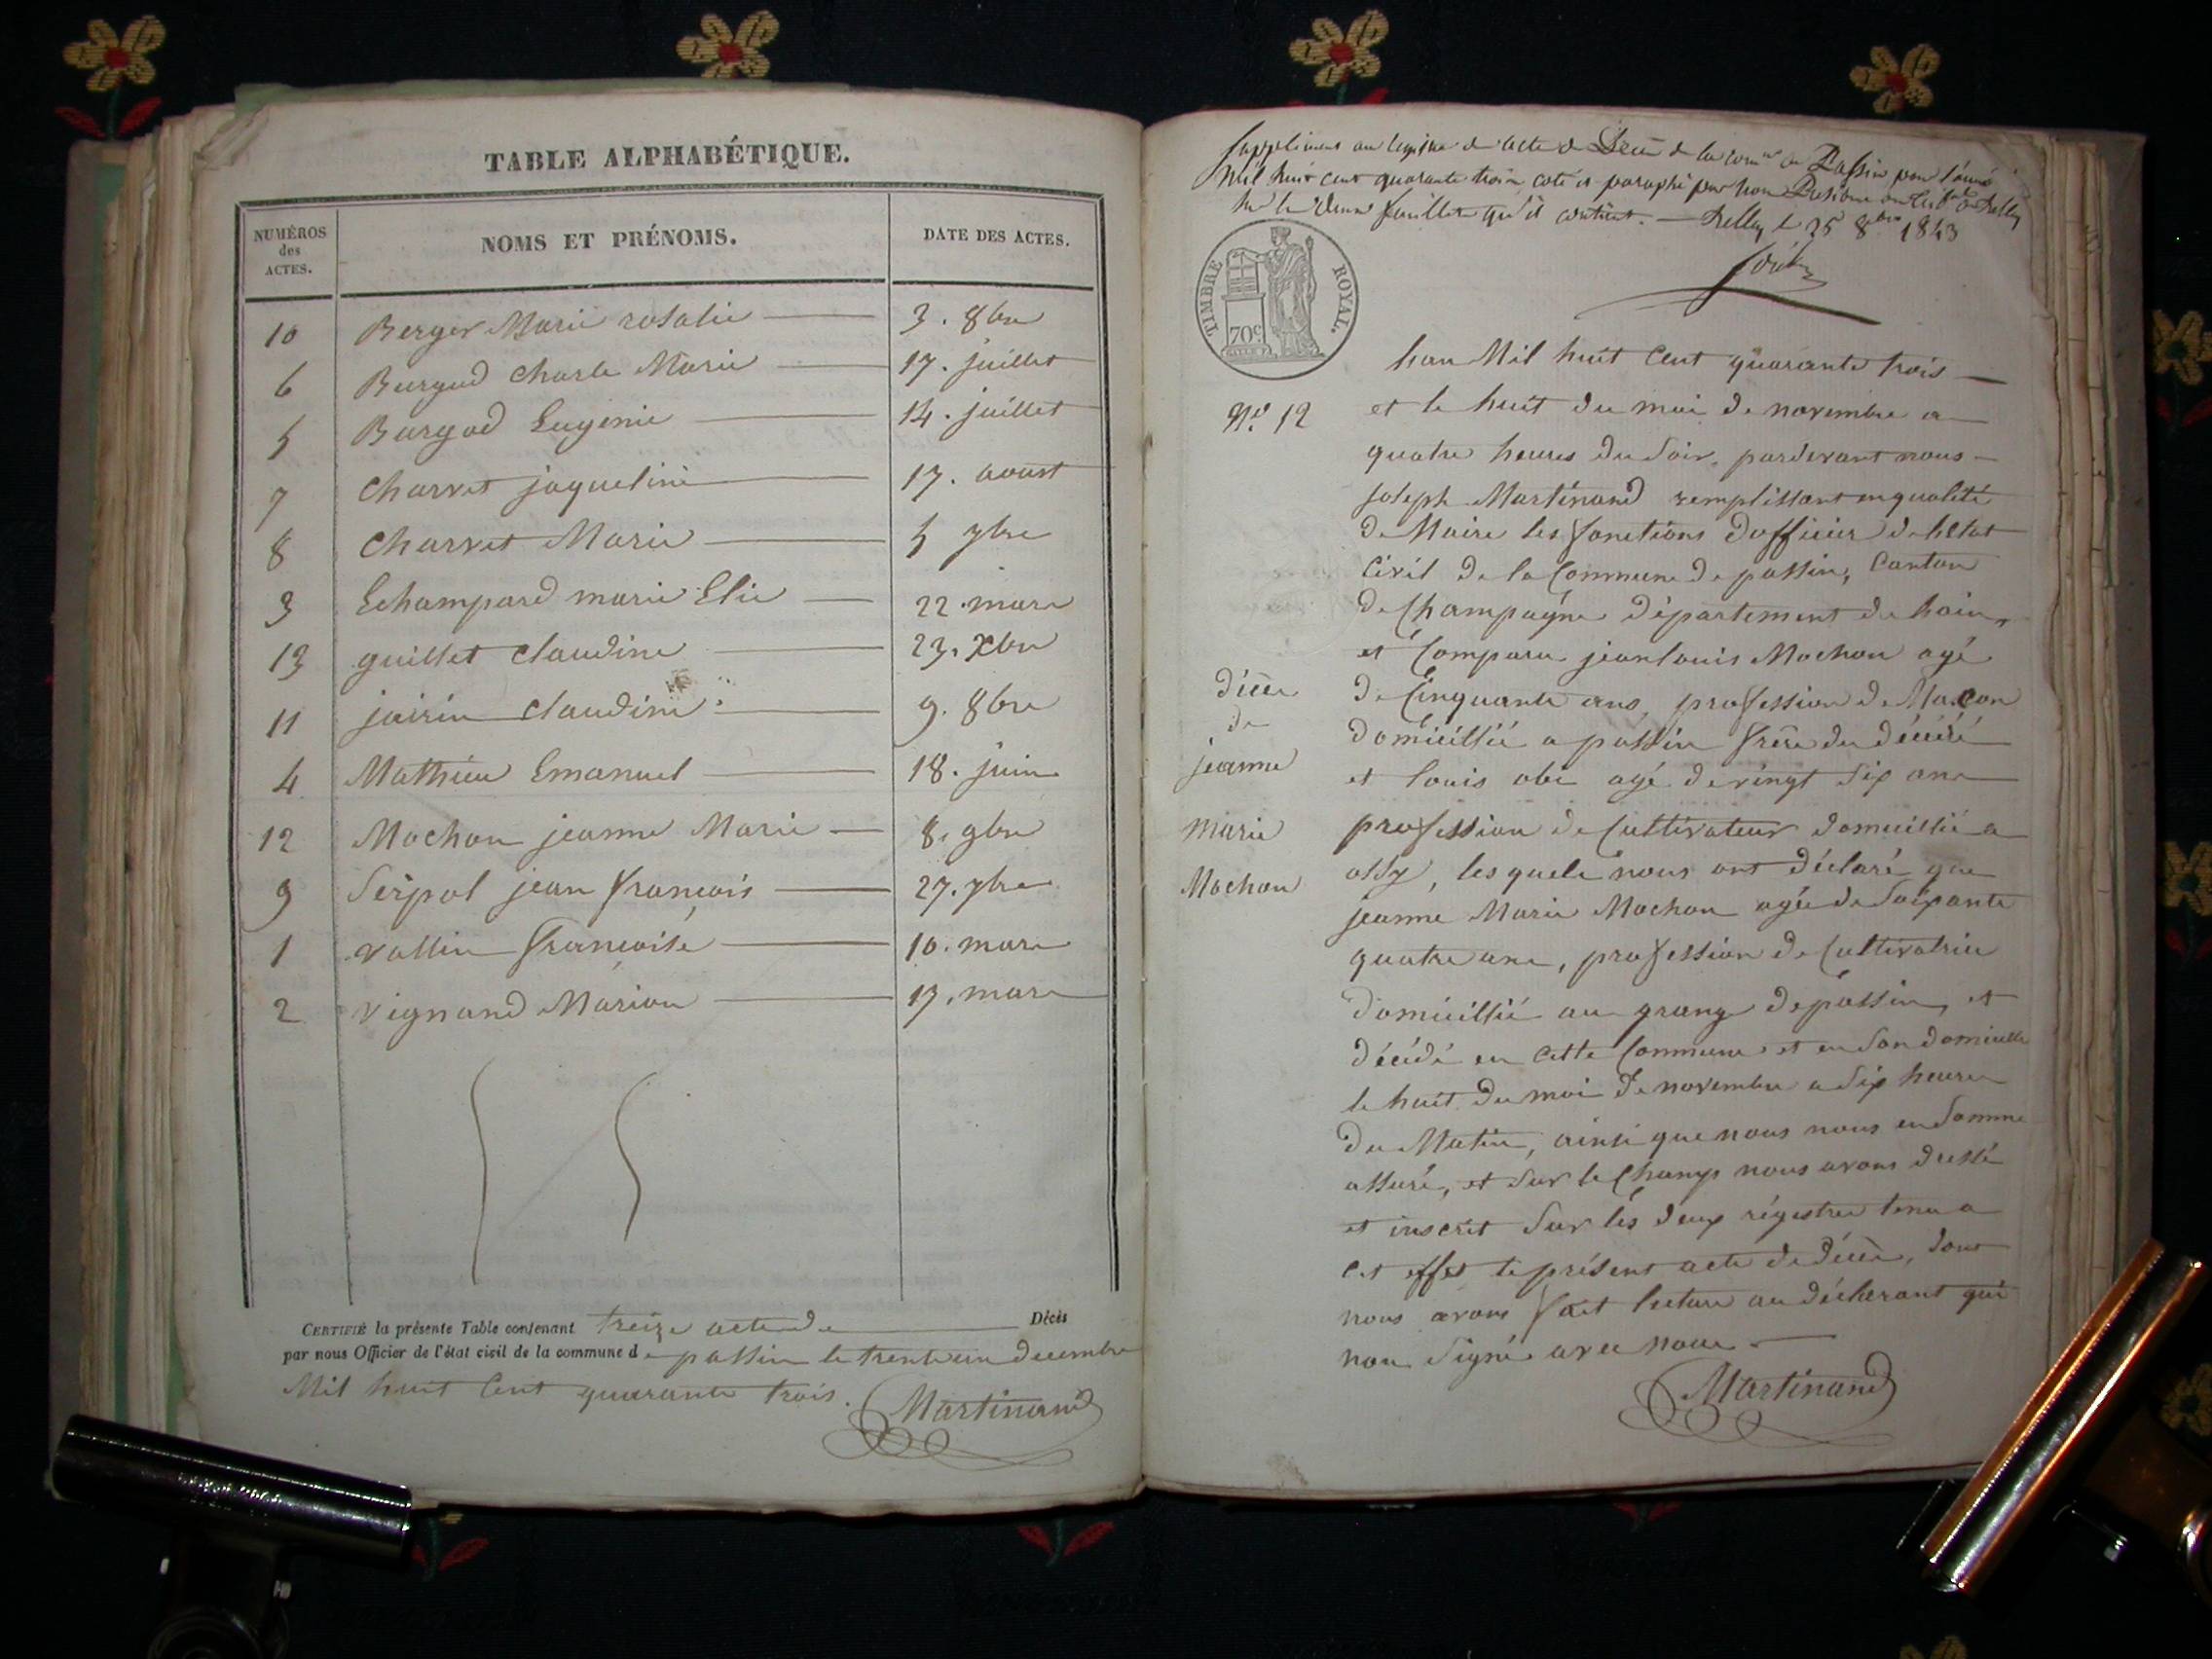 TABLE ALPHABÉTIQUE.
NUMÉROS des ACTES. NOMS ET PRÉNOMS. DATE DES ACTES.
10 Berger Marie rosalie 3. 8bre
6 Burgod Charle Marie 17. juillet
5 Burgod Eugenie 14. juillet
7 Charvet jaqueline 17. aoust
8 Charvet Marie 5 7bre
3 Echampard marie Elie 22. mars
13 guillet Claudine 23. Xbre
11 jairin Claudine 9. 8bre
4 Mathieu Emanuel 18. juin
12 Mochon jeanne Marie 8. 9bre
9 Serpol jean françois 27. 7bre
1 vallin françoise 10. mars
2 vignand Marion 17. mars
CERTIFIÉ la présente Table contenant treize acte de Décès
par nous Officier de l'état civil de la commune de passin le trente un decembre
Mil huit Cent quarante trois.
Martinand
Supplément au registre de acte de Décès de la comne de Passin pour l'année
Mil huit cent quarante trois, coté et paraphé par nous Président du tribal de Belley
sur le deux feuillets qu'il contient. Belley le 25 8bre 1843
TIMBRE ROYAL.
70c
Lan Mil huit Cent quarante trois
No. 12
et le huit du moi de novembre a
quatre heures du Soir, pardevant nous
joseph Martinand remplissant en qualité
de Maire les fonctions dofficier de letat
Civil de la Commune de passin, Canton
de Champagne département de lain,
et Comparu jean louis Mochon agé
décès
de
jeanne
marie
Mochon
de Cinquante ans, profession de Macon
domicillié a passin frère du décédé
et louis obe agé de vingt six ans
profession de Cultivateur domicillié a
ossy, lesquels nous ont déclaré que
jeanne Marie Mochon agée de Soixante
quatre ans, profession de Cultivatrice
domicillié au grange de passin, et
décédé en Cette Commune et en Son domicille
le huit du moi de novembre a Six heures
du Matin, ainsi que nous nous en Somme
assuré, et Sur le Champ nous avons dressé
et inscrit Sur les deux régistre tenu a
Cet effet le présent acte de décès, dont
nous avons fait lecture au déclarant qui
non Signé avec nous
Martinand